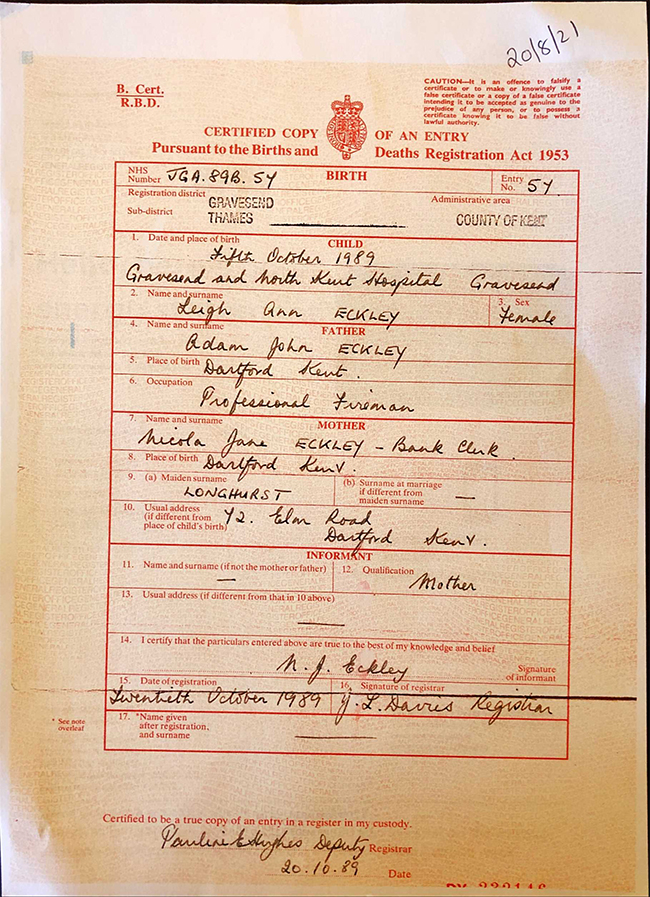 20/8/21
B. Cert.
R.B.D.
CAUTION—It is an offence to falsify a
certificate or to make or knowingly use a
false certificate or a copy of a false certificate
intending it to be accepted as genuine to the
prejudice of any person, or to possess a
certificate knowing it to be false without
lawful authority.
CERTIFIED COPY OF AN ENTRY
Pursuant to the Births and Deaths Registration Act 1953
NHS Number JGA.89B.54 BIRTH Entry No. 54
Registration district GRAVESEND Administrative area
Sub-district THAMES COUNTY OF KENT
1. Date and place of birth CHILD
Fifth October 1989
Gravesend and North Kent Hospital Gravesend
2. Name and surname 3. Sex
Leigh Ann ECKLEY Female
4. Name and surname FATHER
Adam John ECKLEY
5. Place of birth
Dartford Kent.
6. Occupation
Professional Fireman
7. Name and surname MOTHER
Nicola Jane ECKLEY – Bank Clerk.
8. Place of birth
Dartford Kent.
9. (a) Maiden surname (b) Surname at marriage
if different from
maiden surname —
LONGHURST
10. Usual address
(if different from
place of child's birth)
42. Elm Road
Dartford Kent.
INFORMANT
11. Name and surname (if not the mother or father) 12. Qualification
— Mother
13. Usual address (if different from that in 10 above)
—
14. I certify that the particulars entered above are true to the best of my knowledge and belief
N. J. Eckley Signature
of informant
15. Date of registration 16. Signature of registrar
Twentieth October 1989 L. Davies Registrar
* See note
overleaf
17. *Name given
after registration,
and surname —
Certified to be a true copy of an entry in a register in my custody.
Pauline E Hughes Deputy Registrar
20.10.89 Date